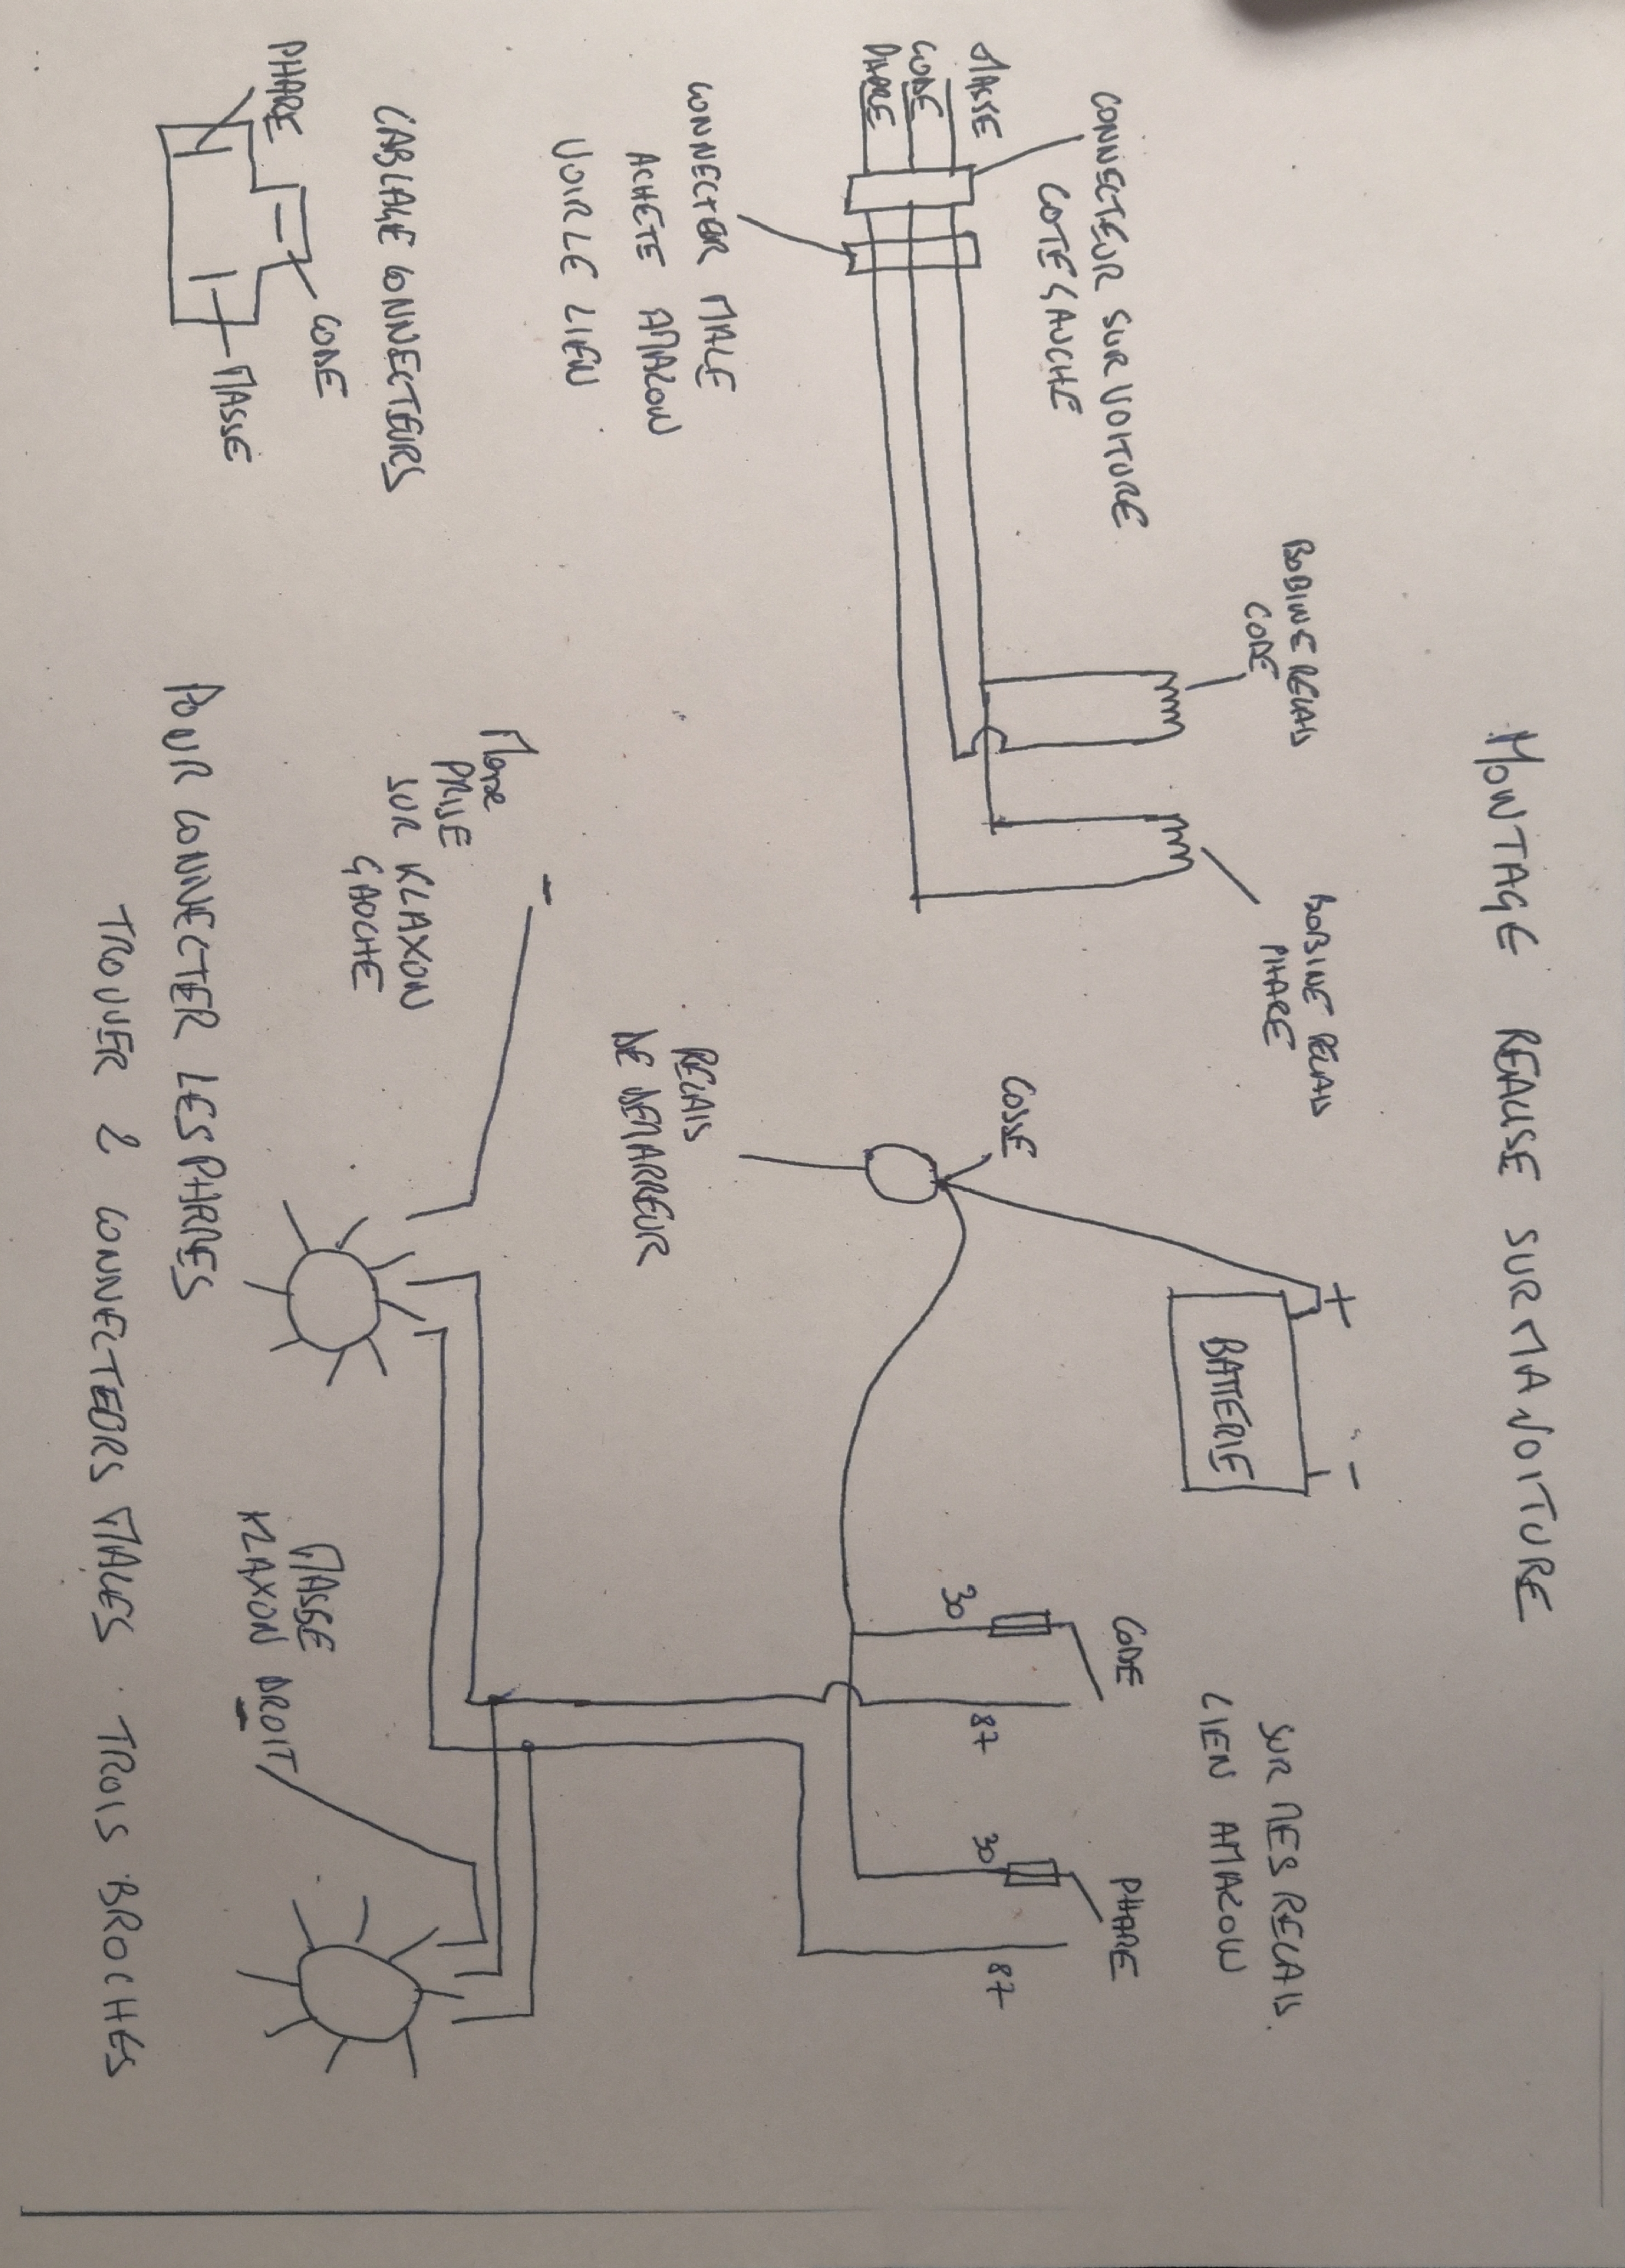 MONTAGE REALISE SUR MA VOITURE
BOBINE RELAIS
CODE
BOBINE RELAIS
PHARE
+
-
BATTERIE
SUR MES RELAIS.
LIEN AMAZON
CODE
PHARE
30
87
30
87
CONNECTEUR SUR VOITURE
COTE GAUCHE
MASSE
CODE
PHARE
COSSE
CONNECTER MALE
ACHETE AMAZON
VOIR LE LIEN
RELAIS
DE DEMARREUR
-
Masse
PRISE
SUR KLAXON
GAUCHE
CABLAGE CONNECTEURS
CODE
PHARE
MASSE
MASSE
KLAXON DROIT
-
POUR CONNECTER LES PHARES
TROUVER 2 CONNECTEURS MALES TROIS BROCHES